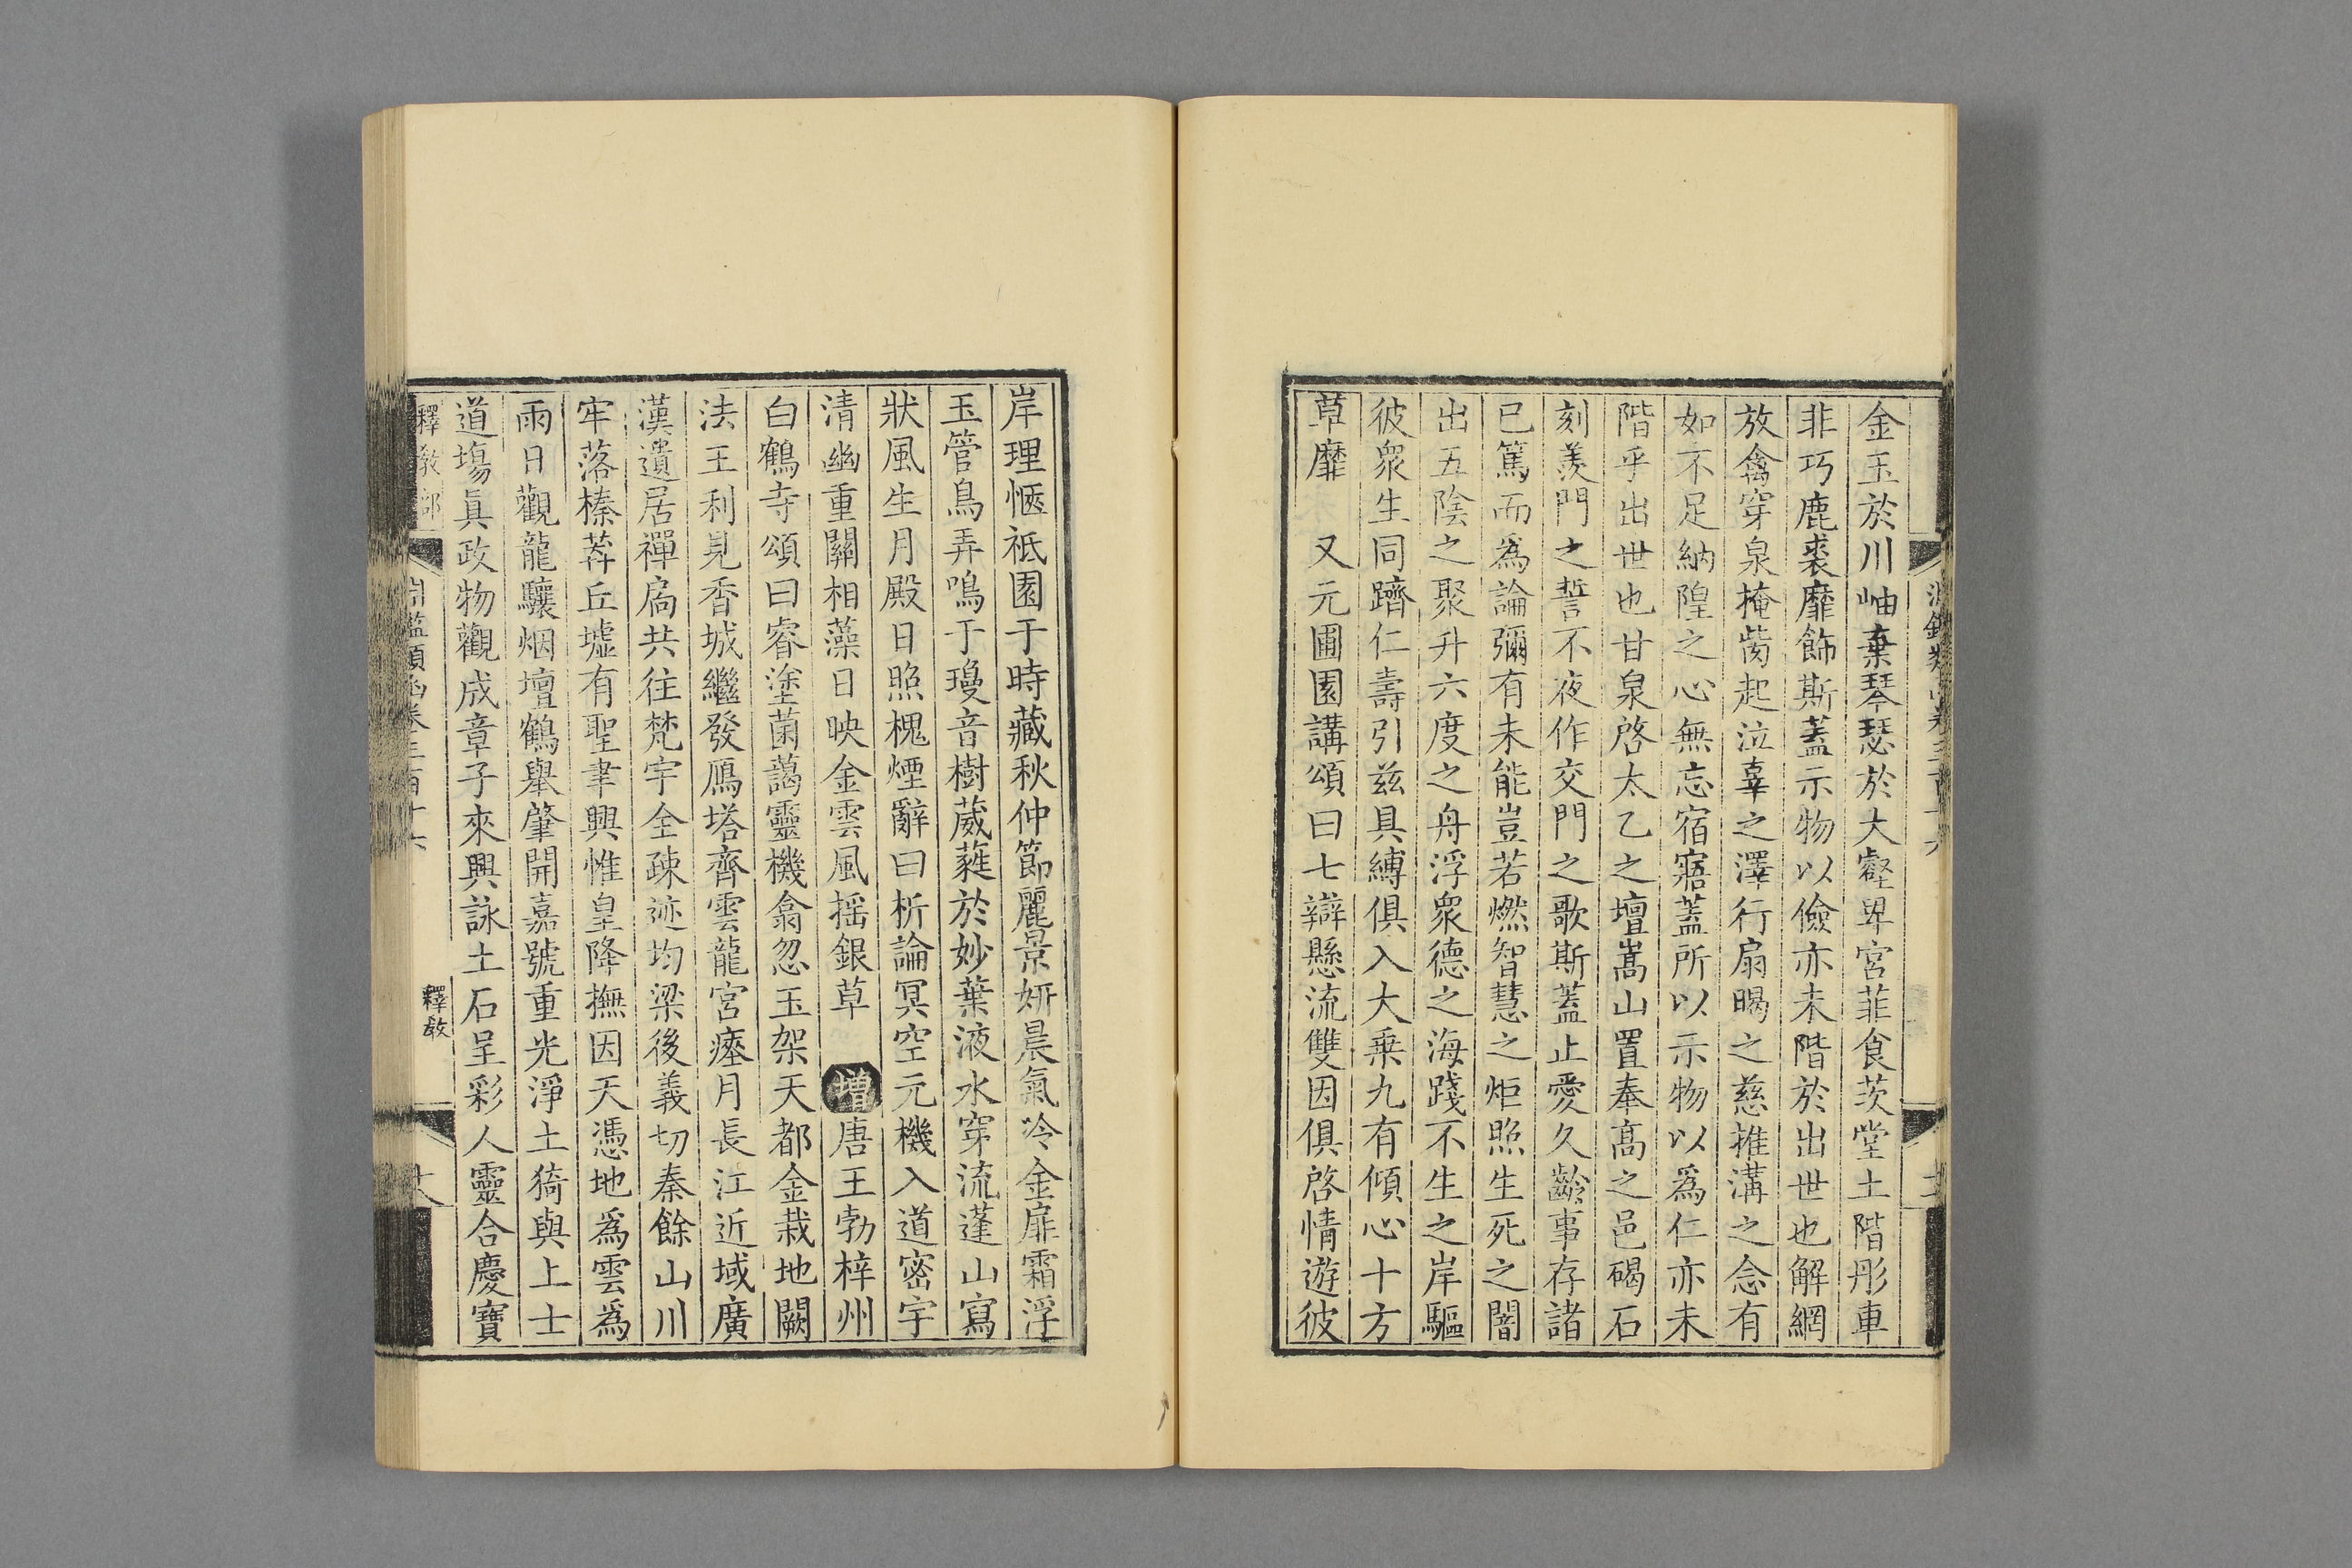 金玉於川岫棄琴瑟於大壑卑宮菲食茨堂土階彤車
非巧鹿裘靡飾斯蓋示物以儉亦未階於出世也解網
放禽穿泉掩胔起泣辜之澤行扇暍之慈推溝之念有
如不足納隍之心無忘宿寤蓋所以示物以爲仁亦未
階乎出世也甘泉啓太乙之壇嵩山置奉高之邑碣石
刻羡門之誓不夜作交門之歌斯蓋止愛久齡事存諸
已篤而爲論彌有未能豈若燃智慧之炬照生死之闇
出五陰之聚升六度之舟浮衆德之海踐不生之岸驅
彼衆生同躋仁壽引兹具縛俱入大乗九有傾心十方
草靡 又元圃園講頌曰七辯懸流雙因俱啓情遊彼
岸理愜祇園于時藏秋仲節麗景妍晨氣冷金扉霜浮
玉管鳥弄鳴于瓊音樹葳蕤於妙葉液水穿流蓬山寫
狀風生月殿日照槐煙辭曰析論冥空元機入道密宇
清幽重關相藻日映金雲風揺銀草 增唐王勃梓州
白鶴寺頌曰睿塗菌藹靈機翕忽玉架天都金栽地闕
法王利見香城繼發鴈塔齊雲龍宮瘞月長江近域廣
漢遺居禪扃共往梵宇全疎迹均梁後義切秦餘山川
牢落榛莽丘墟有聖聿興惟皇降撫因天憑地爲雲爲
雨日觀龍驤烟壇鶴舉肇開嘉號重光淨土猗與上士
道塲眞政物觀成章子來興詠土石呈彩人靈合慶寶
釋教部 類函卷三百十六 釋敎